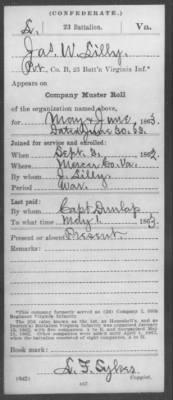 (CONFEDERATE.)
L 23 Battalion. Va.
Jas. W. Lilly.
Pvt, Co. B, 23 Batt'n Virginia Inf.*
Appears on
Company Muster Roll
of the organization named above,
for May & June, 1863.
Dated June 30, 63.
Joined for service and enrolled:
When Sept. 3, 1862.
Where Mercer Co. Va.
By whom J. Lilly.
Period War.
Last paid:
By whom Capt Dunlap
To what time May 1, 1863.
Present or absent Present.
Remarks:
*This company formerly served as (2d) Company I, 60th
Regiment Virginia Infantry.
Book mark:
L. T. Sykes
(642) Copyist.